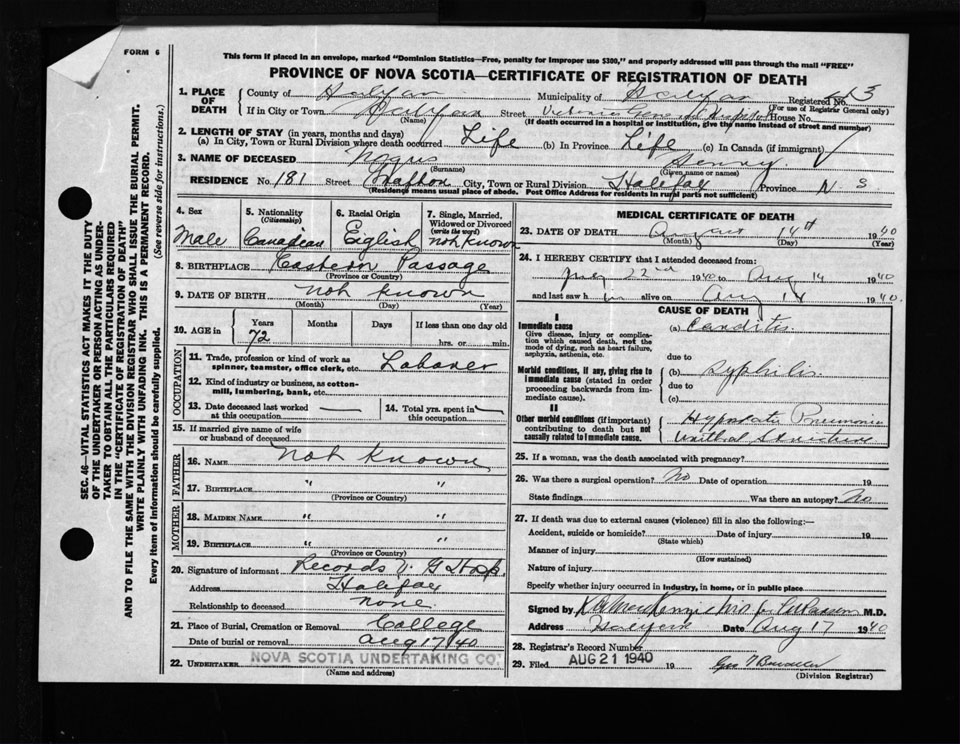 FORM 6
This form if placed in an envelope, marked "Dominion Statistics—Free, penalty for improper use $300," and properly addressed will pass through the mail "FREE"
PROVINCE OF NOVA SCOTIA—CERTIFICATE OF REGISTRATION OF DEATH
1. PLACE OF DEATH County of Halifax Municipality of Halifax Registered No.
(For use of Registrar General only)
If in City or Town Halifax Street Victoria General Hospital House No.
(Name) (If death occurred in a hospital or institution, give the name instead of street and number)
2. LENGTH OF STAY (in years, months and days)
(a) In City, Town or Rural Division where death occurred Life (b) In Province Life (c) In Canada (if immigrant)
3. NAME OF DECEASED Henry
(Surname) (Given name or names)
RESIDENCE No. 181 Street City, Town or Rural Division Halifax Province N S
(Residence means usual place of abode. Post Office Address for residents in rural parts not sufficient)
4. Sex Male
5. Nationality (Citizenship) Canadian
6. Racial Origin English
7. Single, Married, Widowed or Divorced (write the word) not known
8. BIRTHPLACE Eastern Passage
(Province or Country)
9. DATE OF BIRTH not known
(Month) (Day) (Year)
10. AGE in Years 72 Months Days If less than one day old
hrs. or min.
OCCUPATION
11. Trade, profession or kind of work as spinner, teamster, office clerk, etc. Labourer
12. Kind of industry or business, as cotton-mill, lumbering, bank, etc.
13. Date deceased last worked at this occupation —
14. Total yrs. spent in this occupation —
15. If married give name of wife or husband of deceased
FATHER
16. Name not known
17. Birthplace " "
(Province or Country)
MOTHER
18. Maiden Name " "
19. Birthplace " "
(Province or Country)
20. Signature of informant Records V. G Hosp.
Address Halifax
Relationship to deceased none.
21. Place of Burial, Cremation or Removal College
Date of burial or removal Aug 17/40
22. Undertaker NOVA SCOTIA UNDERTAKING CO.
(Name and address)
MEDICAL CERTIFICATE OF DEATH
23. DATE OF DEATH August 14th 1940
(Month) (Day) (Year)
24. I HEREBY CERTIFY that I attended deceased from:
July 22nd 1940 to Aug 14 1940
and last saw h im alive on Aug 14 1940.
CAUSE OF DEATH
I
Immediate cause
Give disease, injury or complication which caused death, not the mode of dying, such as heart failure, asphyxia, asthenia, etc.
(a)
due to
Morbid conditions, if any, giving rise to immediate cause (stated in order proceeding backwards from immediate cause).
(b) Syphilis
due to
(c)
II
Other morbid conditions (if important) contributing to death but not causally related to immediate cause.
Pneumonia
25. If a woman, was the death associated with pregnancy?
26. Was there a surgical operation? No Date of operation 19
State findings Was there an autopsy? No
27. If death was due to external causes (violence) fill in also the following:—
Accident, suicide or homicide? Date of injury 19
(State which)
Manner of injury
(How sustained)
Nature of injury
Specify whether injury occurred in industry, in home, or in public place
Signed by M.D.
Address Date Aug 17 1940
28. Registrar's Record Number
29. Filed AUG 21 1940 19
(Division Registrar)
SEC. 46—VITAL STATISTICS ACT MAKES IT THE DUTY
OF THE UNDERTAKER OR PERSON ACTING AS UNDERTAKER TO OBTAIN ALL THE PARTICULARS REQUIRED
IN THE "CERTIFICATE OF REGISTRATION OF DEATH"
AND TO FILE THE SAME WITH THE DIVISION REGISTRAR WHO SHALL ISSUE THE BURIAL PERMIT.
WRITE PLAINLY WITH UNFADING INK. THIS IS A PERMANENT RECORD.
Every item of information should be carefully supplied. (See reverse side for instructions.)